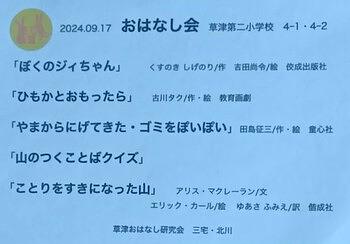 2024.09.17 おはなし会 草津第二小学校 4-1・4-2
「ぼくのジィちゃん」 くすのき しげのり/作 吉田尚令/絵 佼成出版社
「ひもかとおもったら」 古川タク/作・絵 教育画劇
「やまからにげてきた・ゴミをぽいぽい」 田島征三/作・絵 童心社
「山のつくことばクイズ」
「ことりをすきになった山」 アリス・マクレーラン/文
エリック・カール/絵 ゆあさ ふみえ/訳 偕成社
草津おはなし研究会 三宅・北川